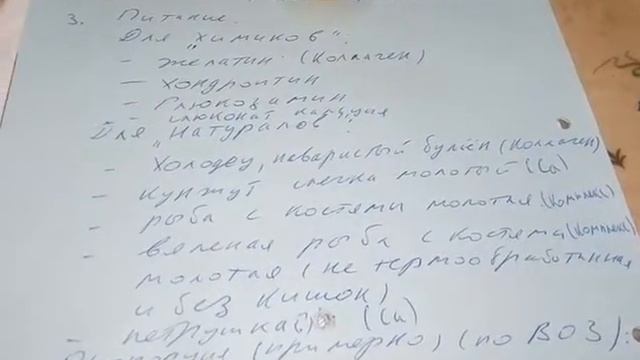 3. Питание.
Для "химиков":
- желатин (коллаген)
- хондроитин
- глюкозамин
- глюконат кальция
Для "натуралов":
- холодец, наваристый бульён (коллаген)
- кунжут слегка молотый (Ca)
- рыба с костями молотая (комплекс)
- вяленая рыба с костями (комплекс)
молотая (не термообработанная
и без кишок)
- петрушка (Ca)
(примерно) (по ВОЗ):